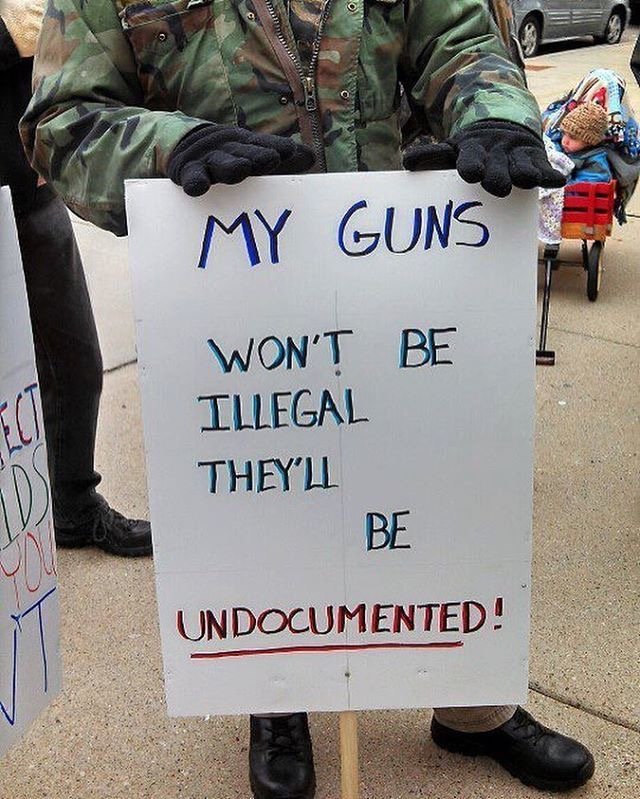 MY GUNS
WON'T BE
ILLEGAL
THEY'LL
BE
UNDOCUMENTED!
ECT
IDS
YOU